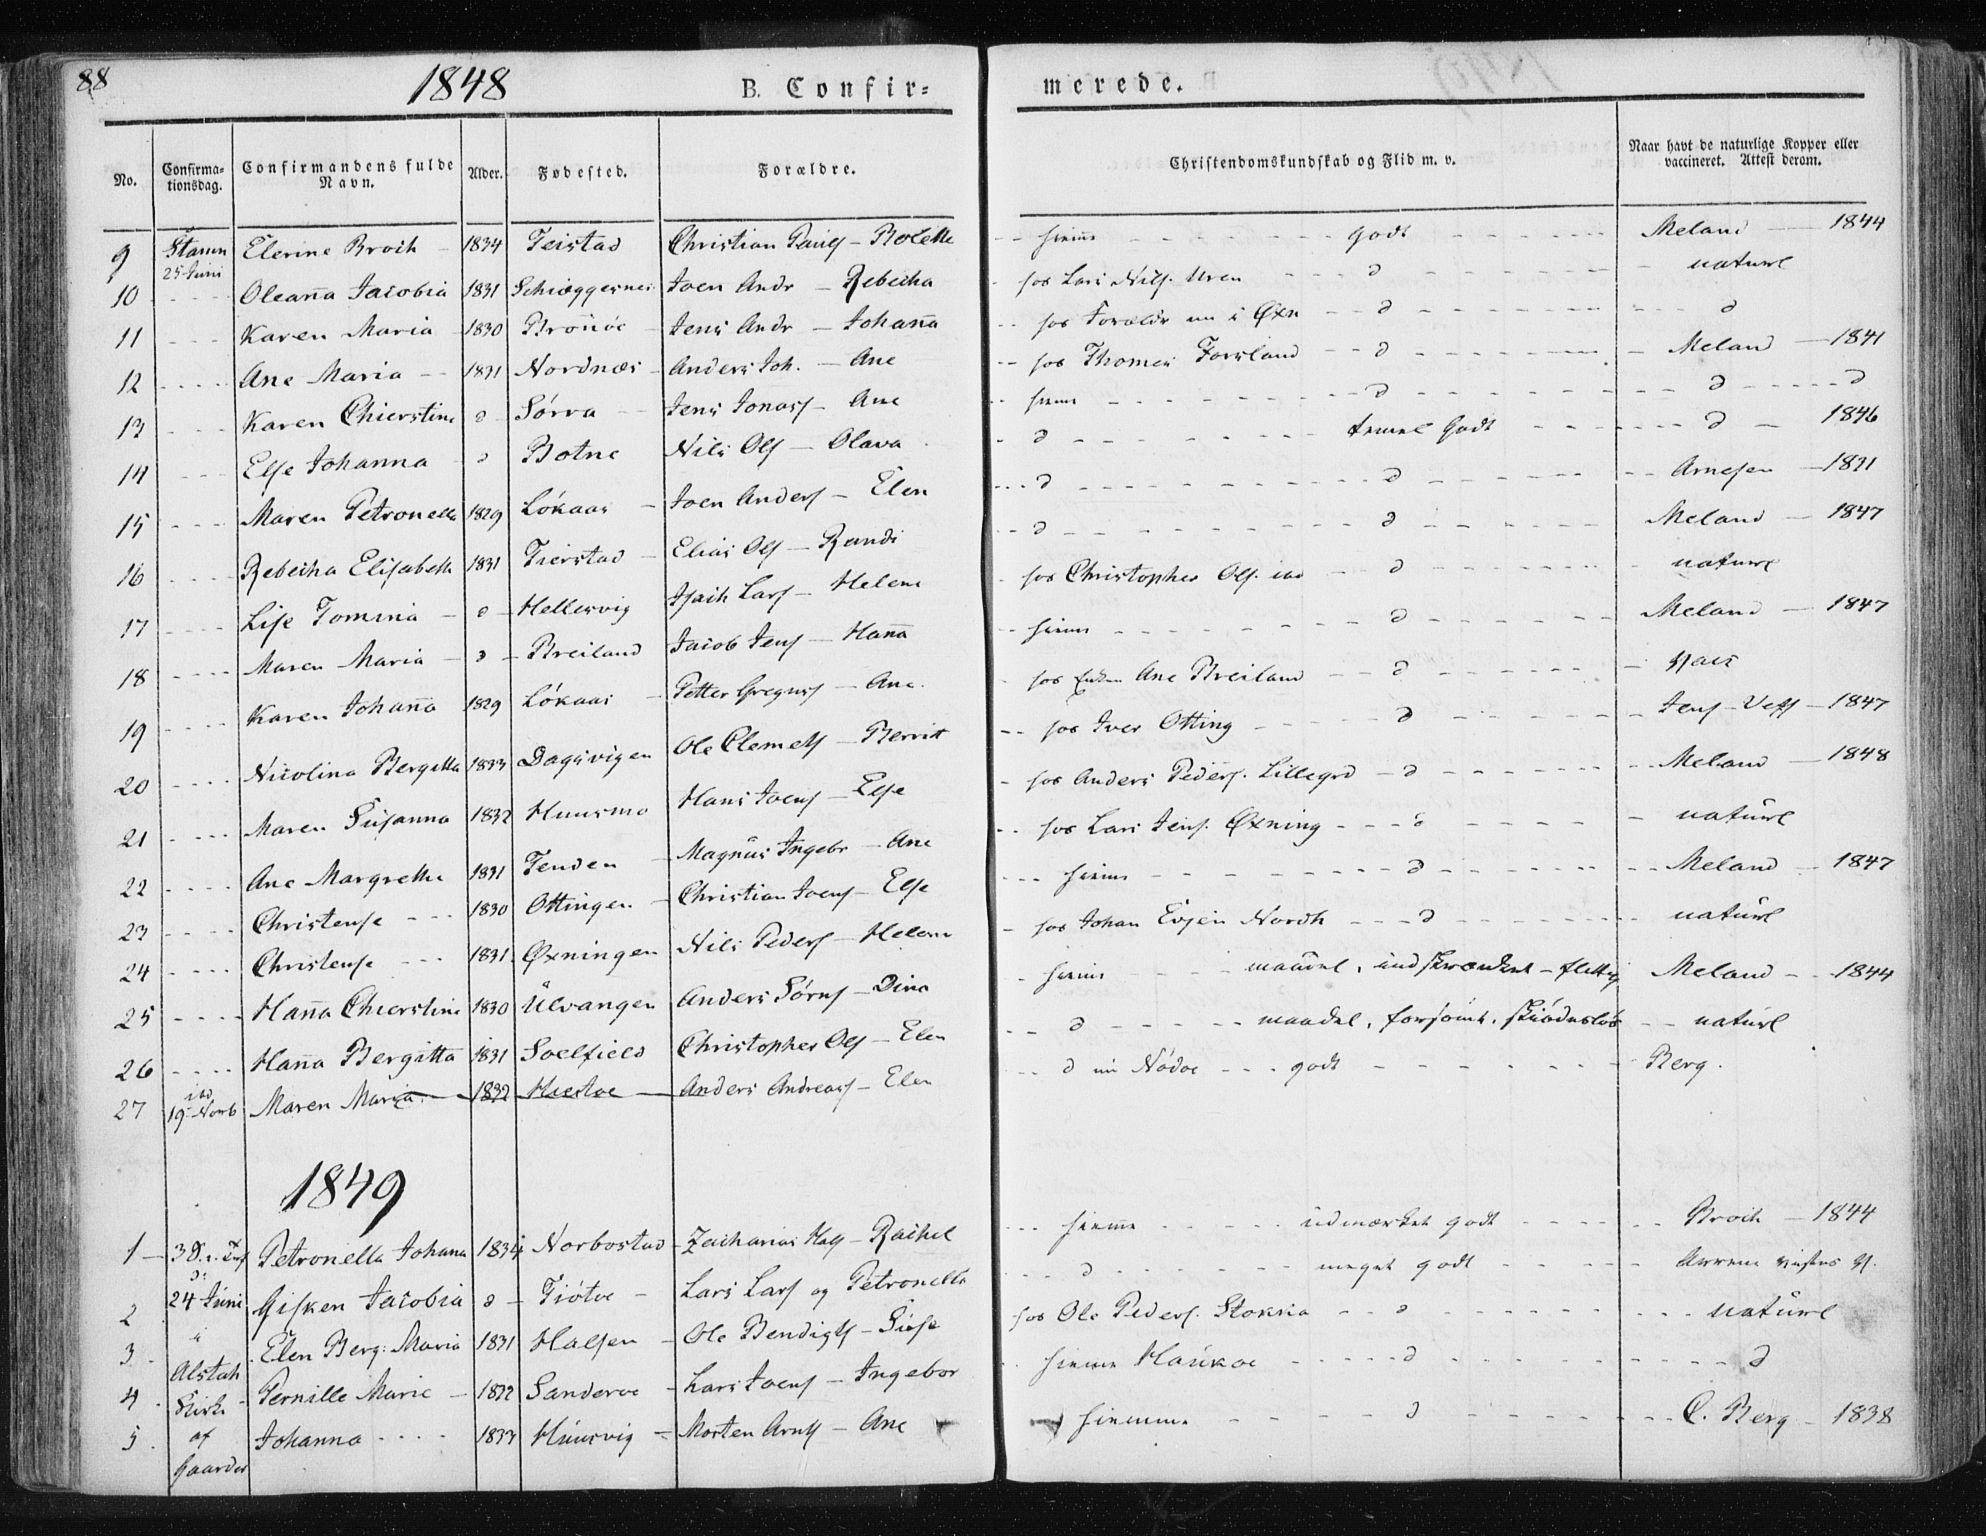 88
1848
B. Confir=
merede.
No. Confirma-tionsdag. Confirmandens fulde Navn. Alder. Fødested. Forældre. Christendomskundskab og Flid m. v. Naar havt de naturlige Kopper eller vaccineret. Attest derom.
9 Stamn 25 Juni Elerine Broch 1834 Teistad Christian Paulş - Rolette godt Meland 1844
10 Oleaña Jacobia 1831 Joen Andr - Rebecha hos Lars Nils. Uren d naturl
11 Karen Maria 1830 Brönöe Jens Andr - Johaña hos d d
12 Ane Maria 1831 Nordnæs Anders Joh. - Ane hos Thomes Forsland d Meland 1841
13 Karen Chierstine d Sörra Jens Jonass - Ane d d d
14 Else Johanna d Botne Nils Ols - Olava d temel Godt d 1846
15 Maren Petronella 1829 Lökaas Joen Anders - Elen d d Arnesen 1831
16 Rebecha Elisabeth 1831 Tierstad Elias Ols - Randi d d Meland 1847
17 Lise Tomina d Hellesvig Isach Lars - Helene hos Christopher Ols. d naturl
18 Maren Maria d Breiland Jacob Jens - Haña d Meland 1847
19 Karen Johaña 1829 Lökaas Petter Gregers - Ane hos Enken Ane Breiland d
20 Nicolina Bergitta 1833 Dagsvigen Ole Clemets - Berrit hos Iver Otting d Jens 1847
21 Maren Susanna 1832 Huusmo Hans Joens - Else hos Anders Peders. Lillegrd d Meland 1848
22 Ane Margrethe 1831 Tenden Magnus Ingebr - Ane hos Lars Jens. Øxning d naturl
23 Christense 1830 Ottingen Christian Joens - Else d Meland 1847
24 Christense 1831 Øxningen Nils Peders - Helene hos Johan Evjen Nordh d naturl
25 Haña Chierstine 1830 Ulvangen Anders Sörns - Dina maadel, indskrænket - flittig Meland 1844
26 Haña Bergitta 1831 Soelfield Christopher Ols - Elen d maadel, forsömt, skiödeslös naturl
27 19 Norb Maren Maria 1832 Anders Andreass - Elen d godt Berg.
1849
1 Petronella Johana 1834 Norbostad Zacharias - Rachel hiemme udmærket godt Broch 1844
2 24 Juni Gisken Jacobia d Tiötoe Lars Lars og Petronella d meget godt
3 i Elen Berg: Maria 1831 Halsen Ole Bendigts - hos Ole Peders. Stokka d naturl
4 Alstah Kirke Pernille Marie 1832 Sanderoe Lars Joens - Ingebor hiemme d d
5 af Gaarder Johanna 1833 Huusvig Morten Arnts - Ane hiemme d C. Berg 1838